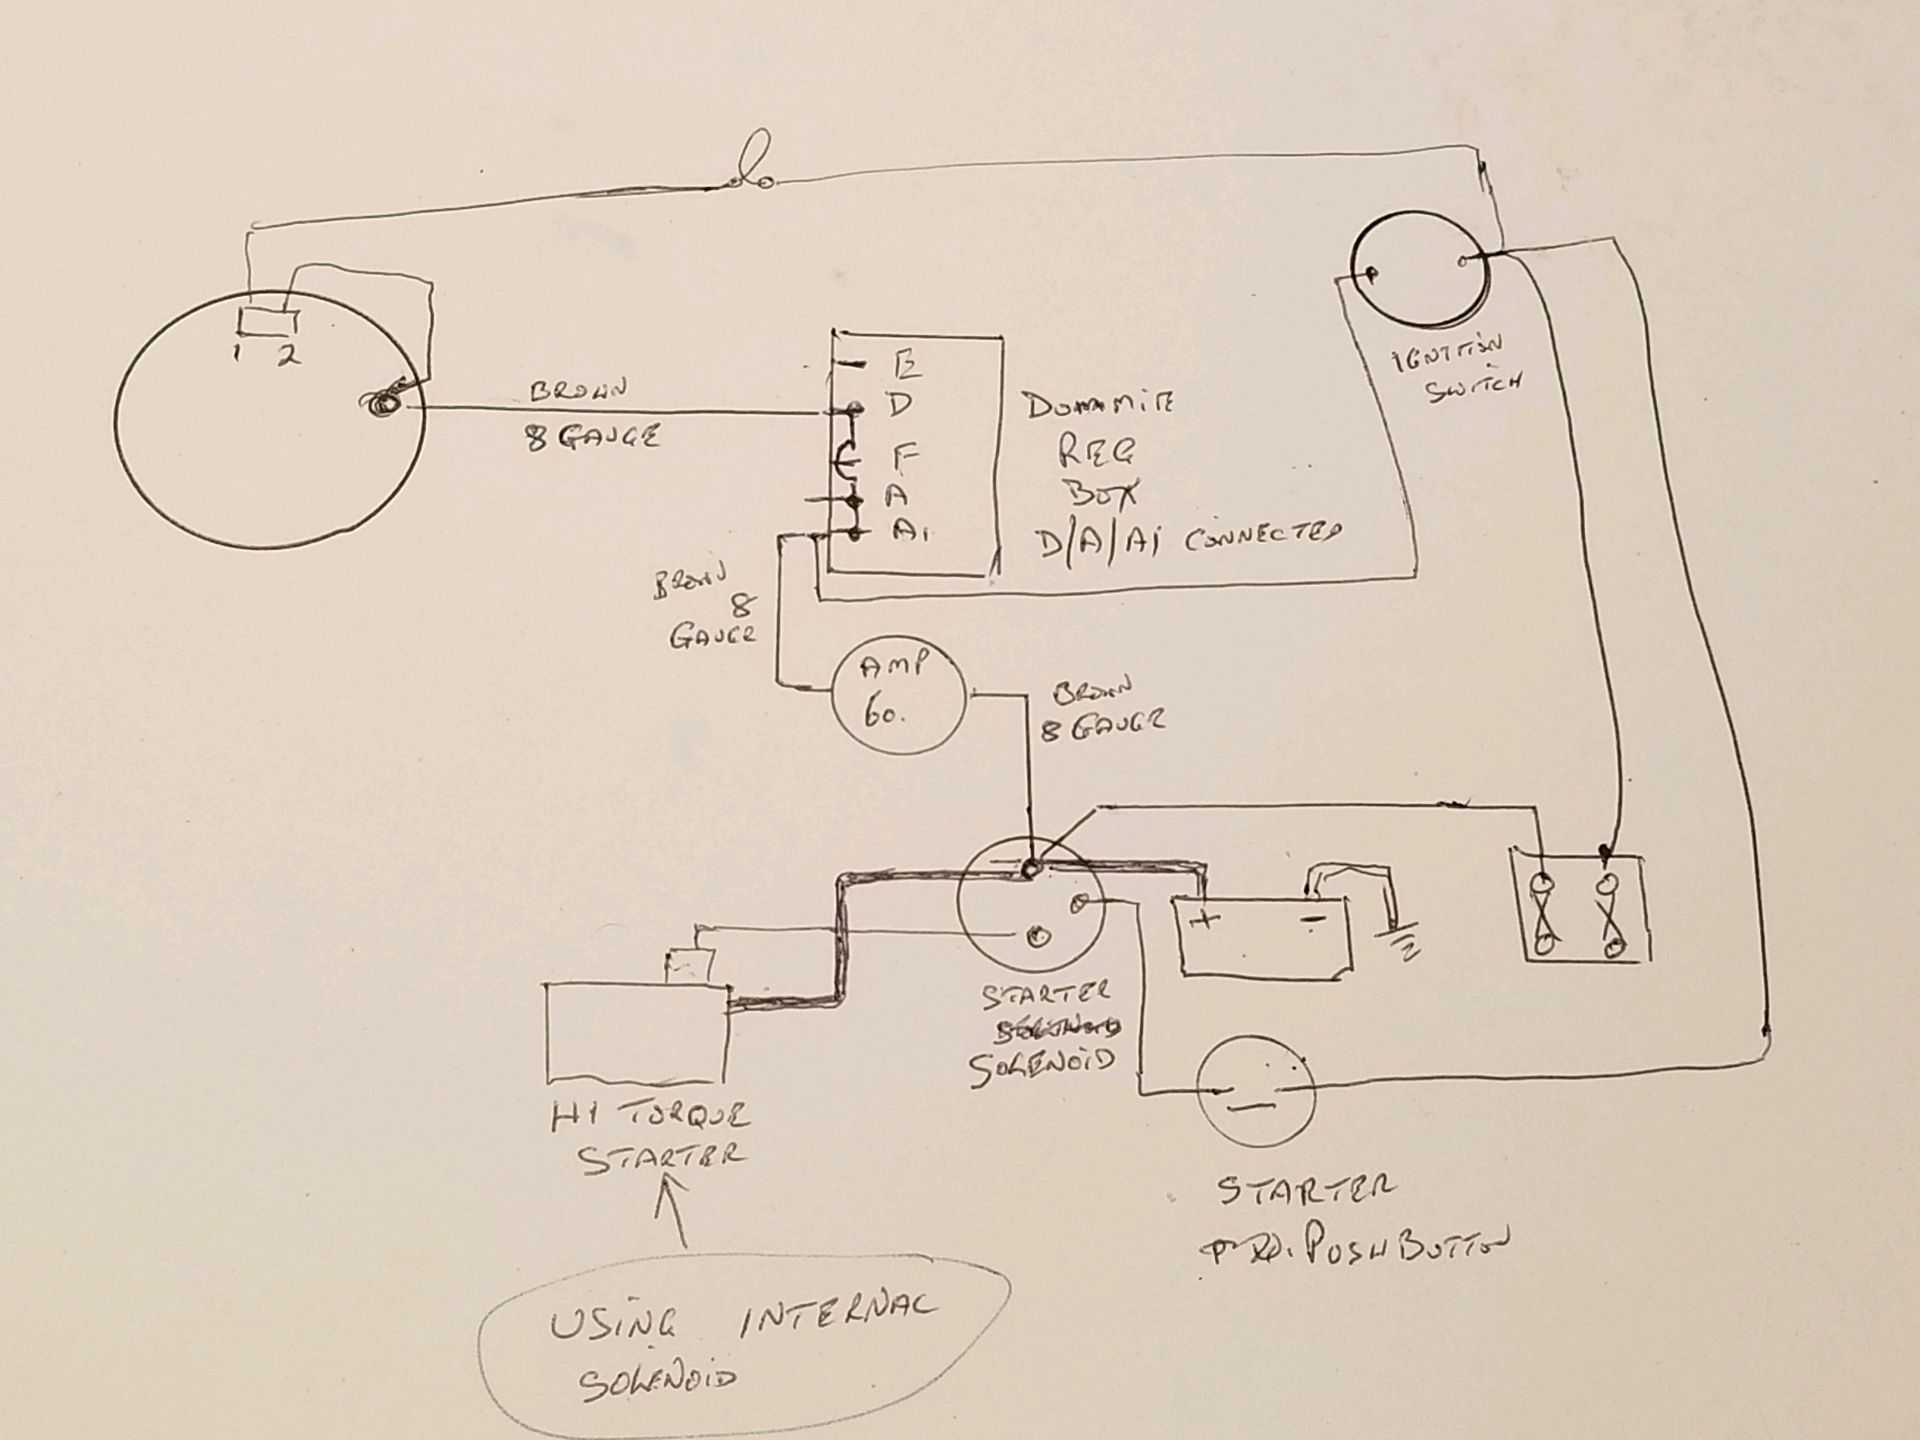 1 2
BROWN
8 GAUGE
E
D
F
A
A1
REG
BOX
D/A/A1 CONNECTED
IGNITION
SWITCH
BROWN
8
GAUGE
AMP
60.
BROWN
8 GAUGE
+ -
STARTER
SOLENOID
HI TORQUE
STARTER
STARTER
PUSH BUTTON
USING INTERNAL
SOLENOID